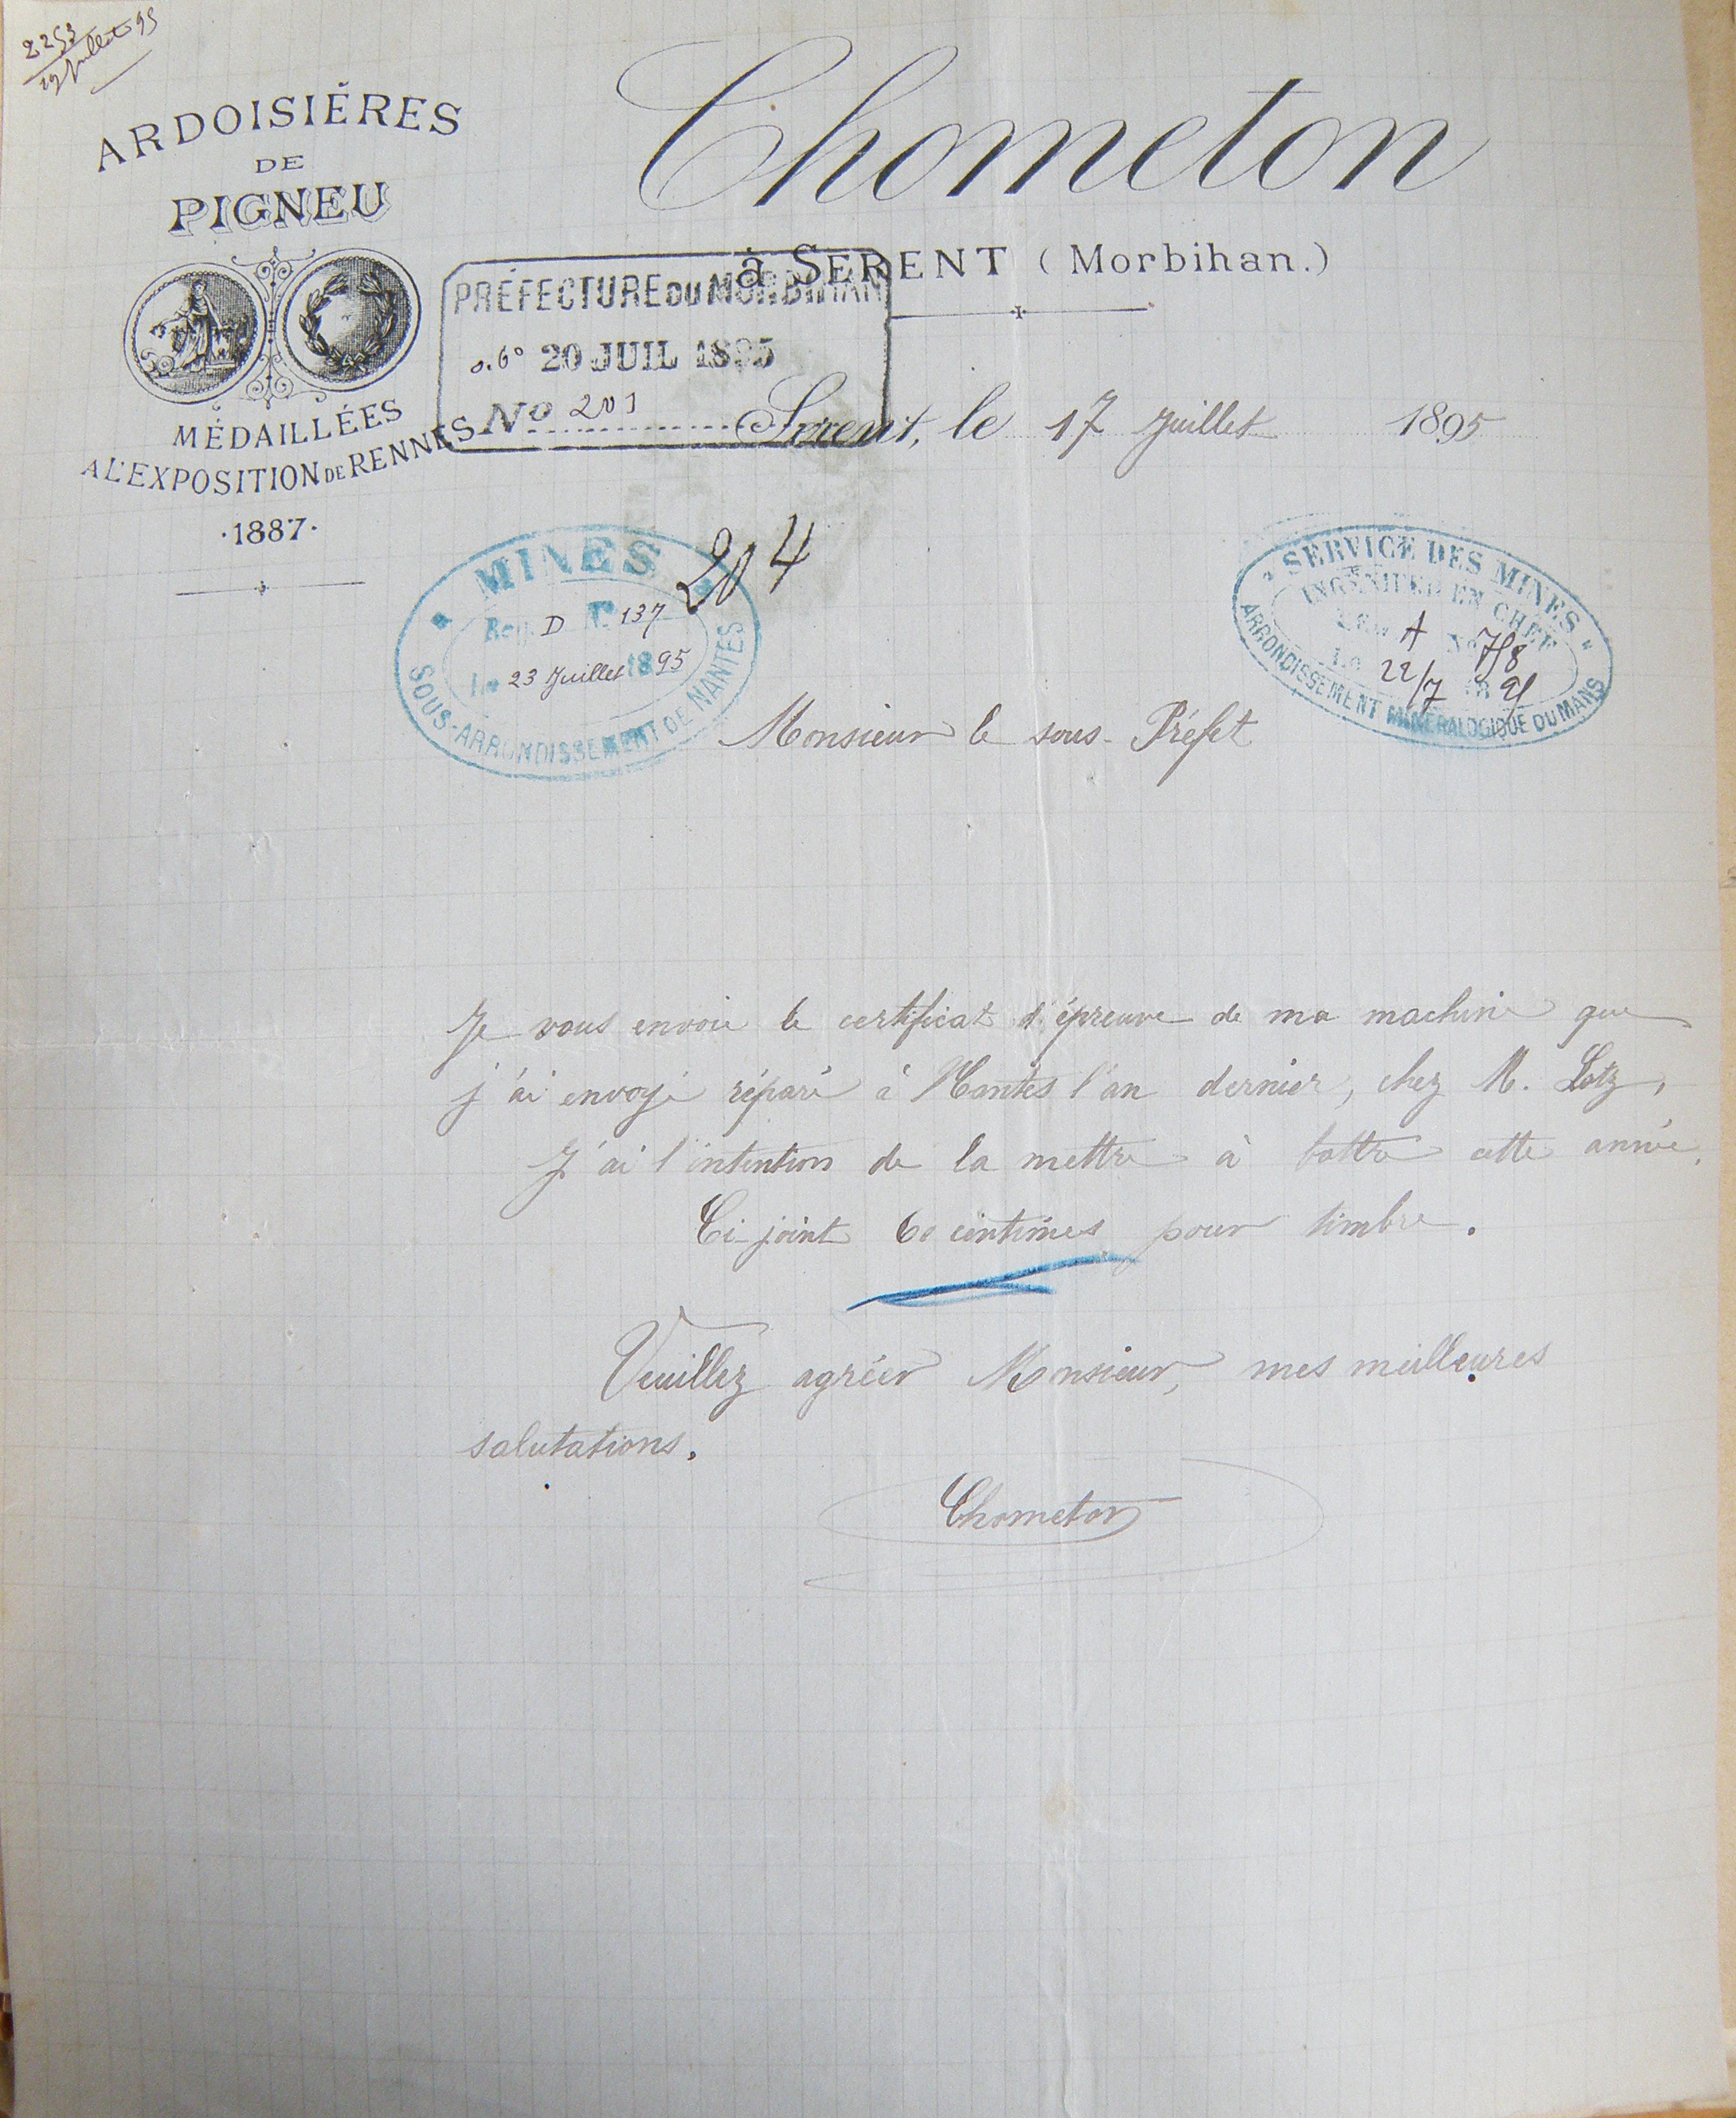 2253
19 Juillet 95
ARDOISIÈRES
DE
PIGNEU
MÉDAILLÉES
A L'EXPOSITION DE RENNES
·1887·
Chometon
à SERENT (Morbihan.)
PRÉFECTURE DU MORBIHAN
20 JUIL 1895
No 201
Serent, le 17 Juillet 1895
204
MINES
Reg. D N° 137
Le 23 Juillet 1895
SOUS-ARRONDISSEMENT DE NANTES
SERVICE DES MINES
INGÉNIEUR EN CHEF
A No 718
Le 22/7 18 95
ARRONDISSEMENT MINÉRALOGIQUE DU MANS
Monsieur le sous-Préfet
Je vous envoie le certificat d'épreuve de ma machine que
j'ai envoyé réparé à Nantes l'an dernier, chez M. Lotz,
J'ai l'intention de la mettre à battre cette année.
Ci-joint 60 centimes pour timbre.
Veuillez agréer Monsieur, mes meilleures
salutations.
Chometon